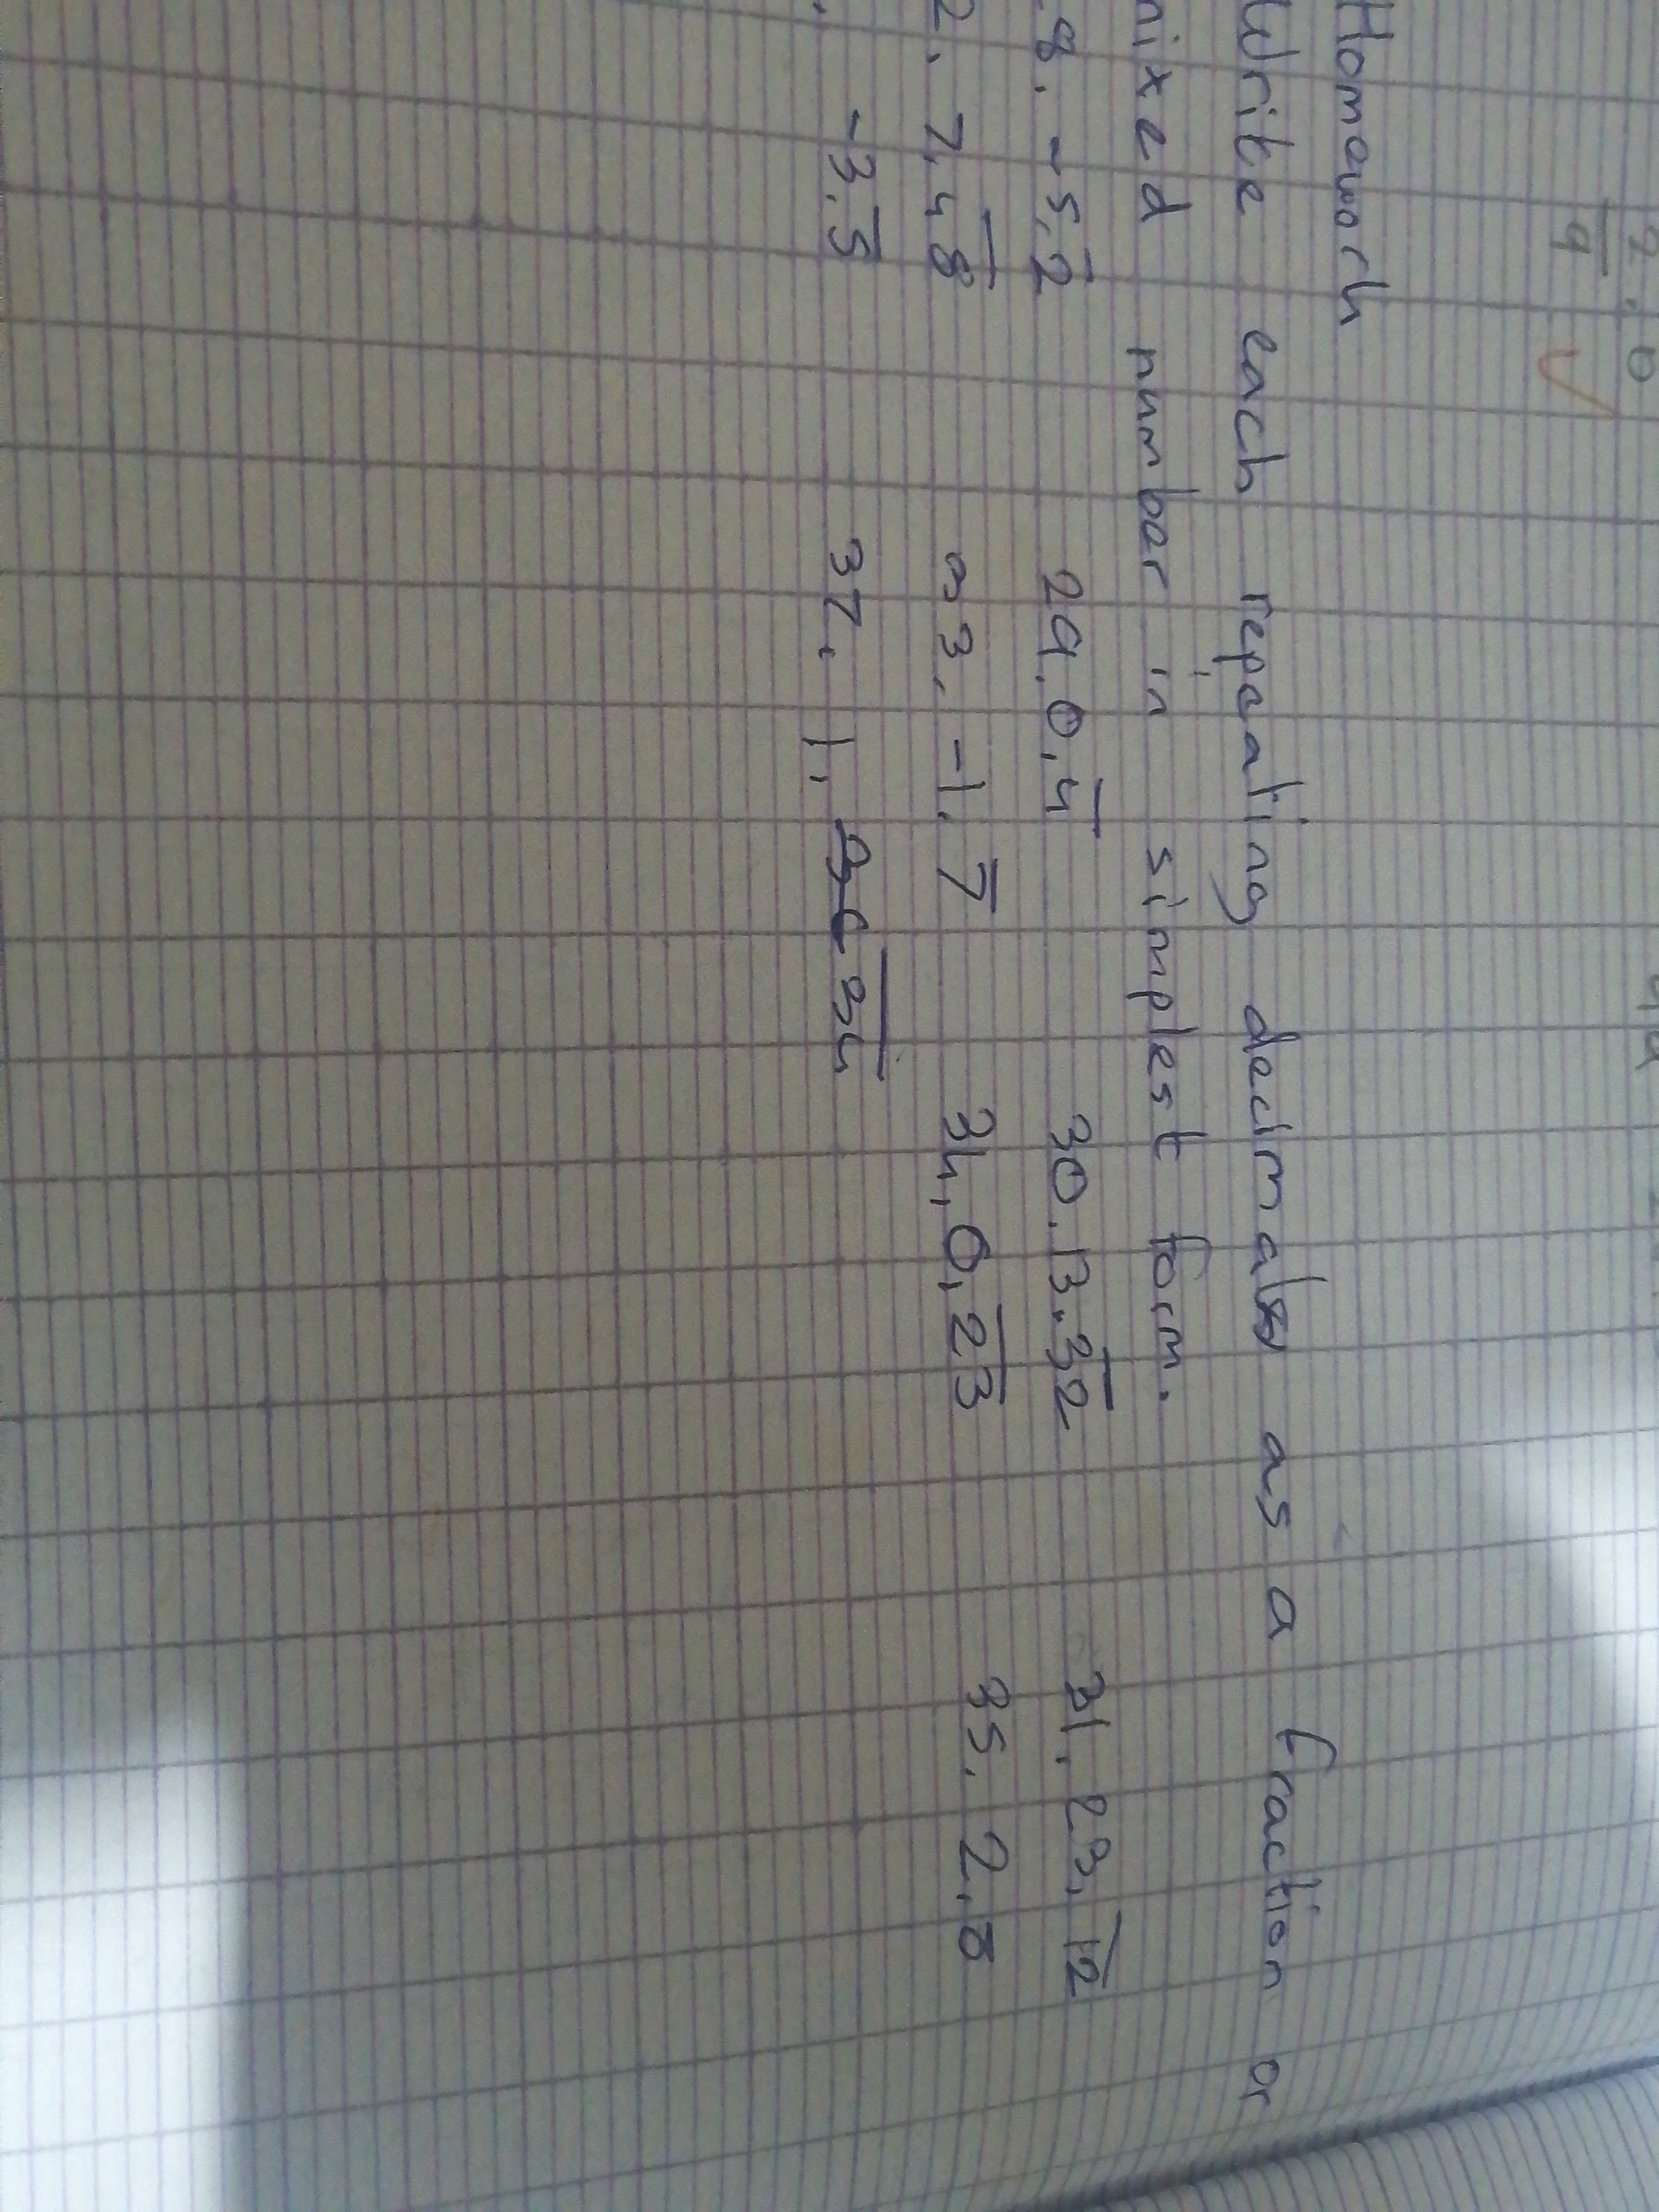 Homework
Write each repeating decimals as a fraction or
mixed number in simplest form.
8. -5.2̅ 29. 0.4̅ 30. 13.3̅2̅ 31. 23.1̅2̅
2. 7.4̅8̅ 33. -1.7̅ 34. 0.2̅3̅ 35. 2.8
-3.5̅ 37. 1.3̅4̅